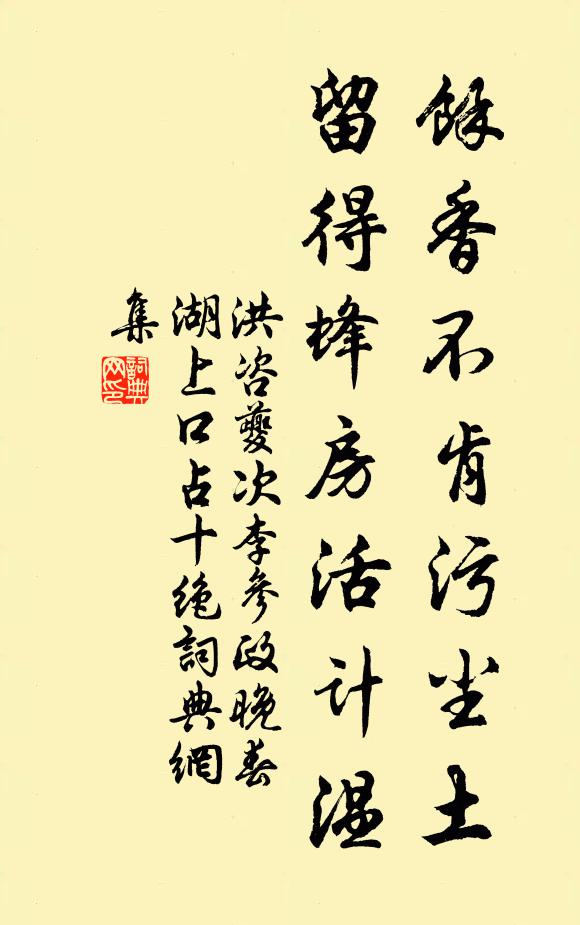 餘香不肯污尘土
留得蜂房活计温
洪咨夔次李參政晚春
湖上口占十绝詞典網
集
詞典网印